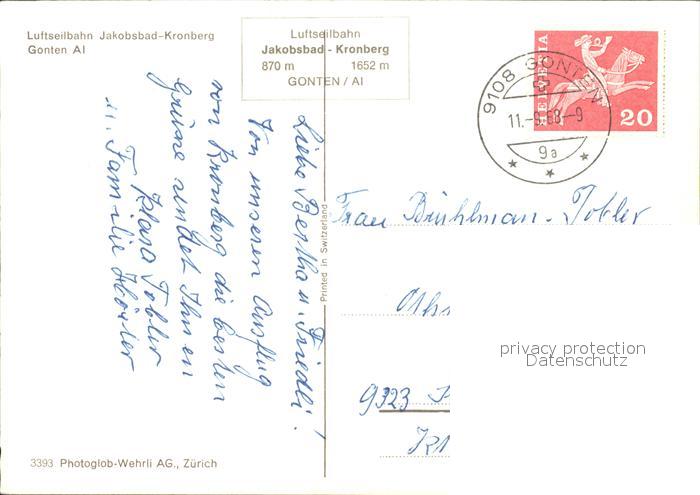 Luftseilbahn Jakobsbad-Kronberg
Gonten AI
Luftseilbahn
Jakobsbad - Kronberg
870 m 1652 m
GONTEN / AI
HELVETIA
20
9108 GONTEN
11.-9.68-9
9a
Liebe Bertha u. Friedli!
Von unseren Ausflug
von Kronberg die besten
Grüsse sendet Ihnen
Klara Tobler
u. Familie
Printed in Switzerland
Frau Brühlman-Tobler
9323
privacy protection
Datenschutz
3393 Photoglob-Wehrli AG., Zürich